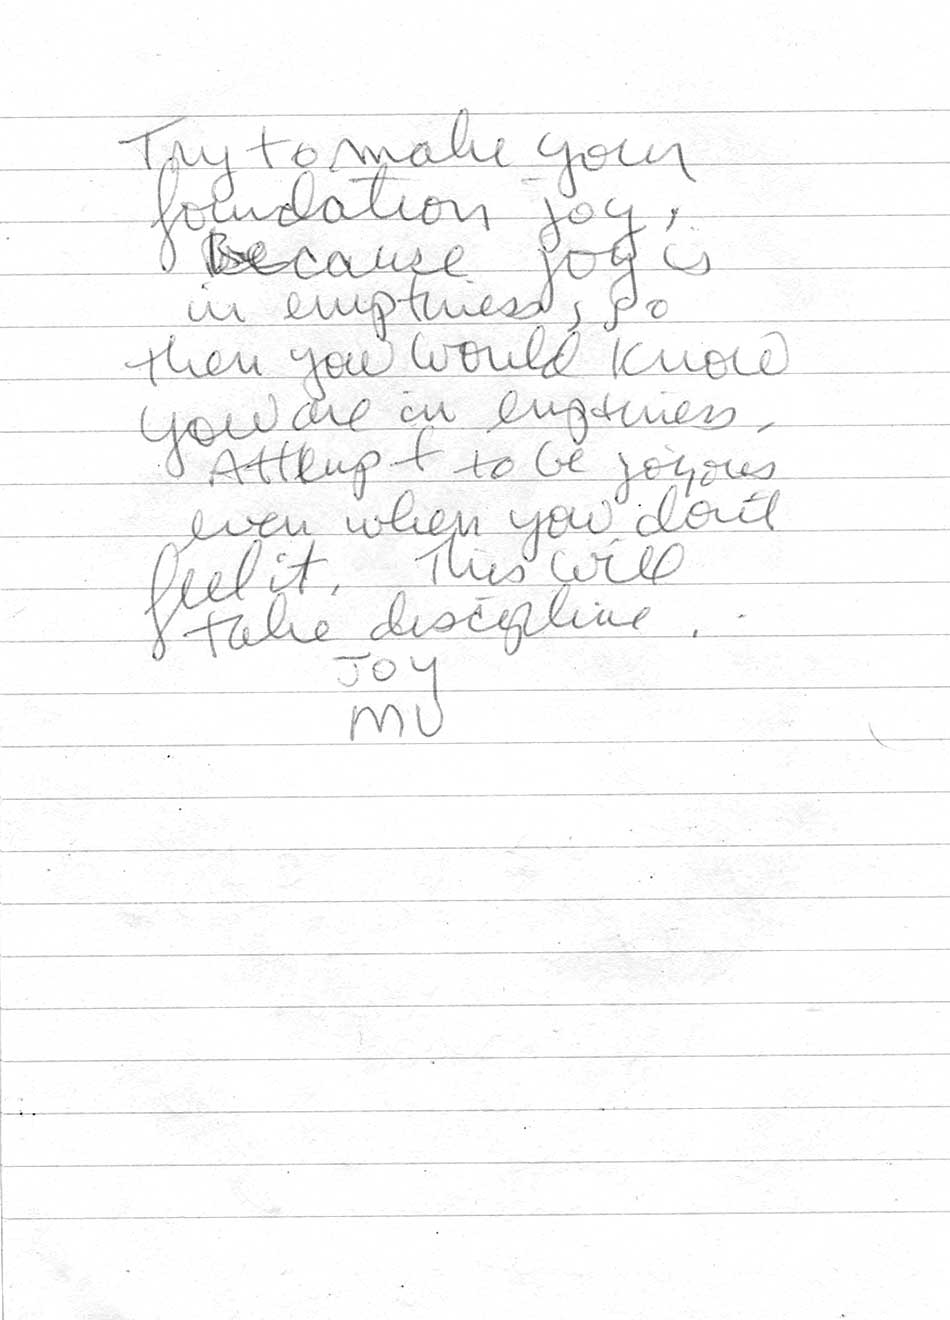 Try to make your
foundation joy,
Because joy is
in emptiness, so
then you would know
you are in emptiness.
Attempt to be joyous
even when you don't
feel it. This will
take discipline.
JOY
MU